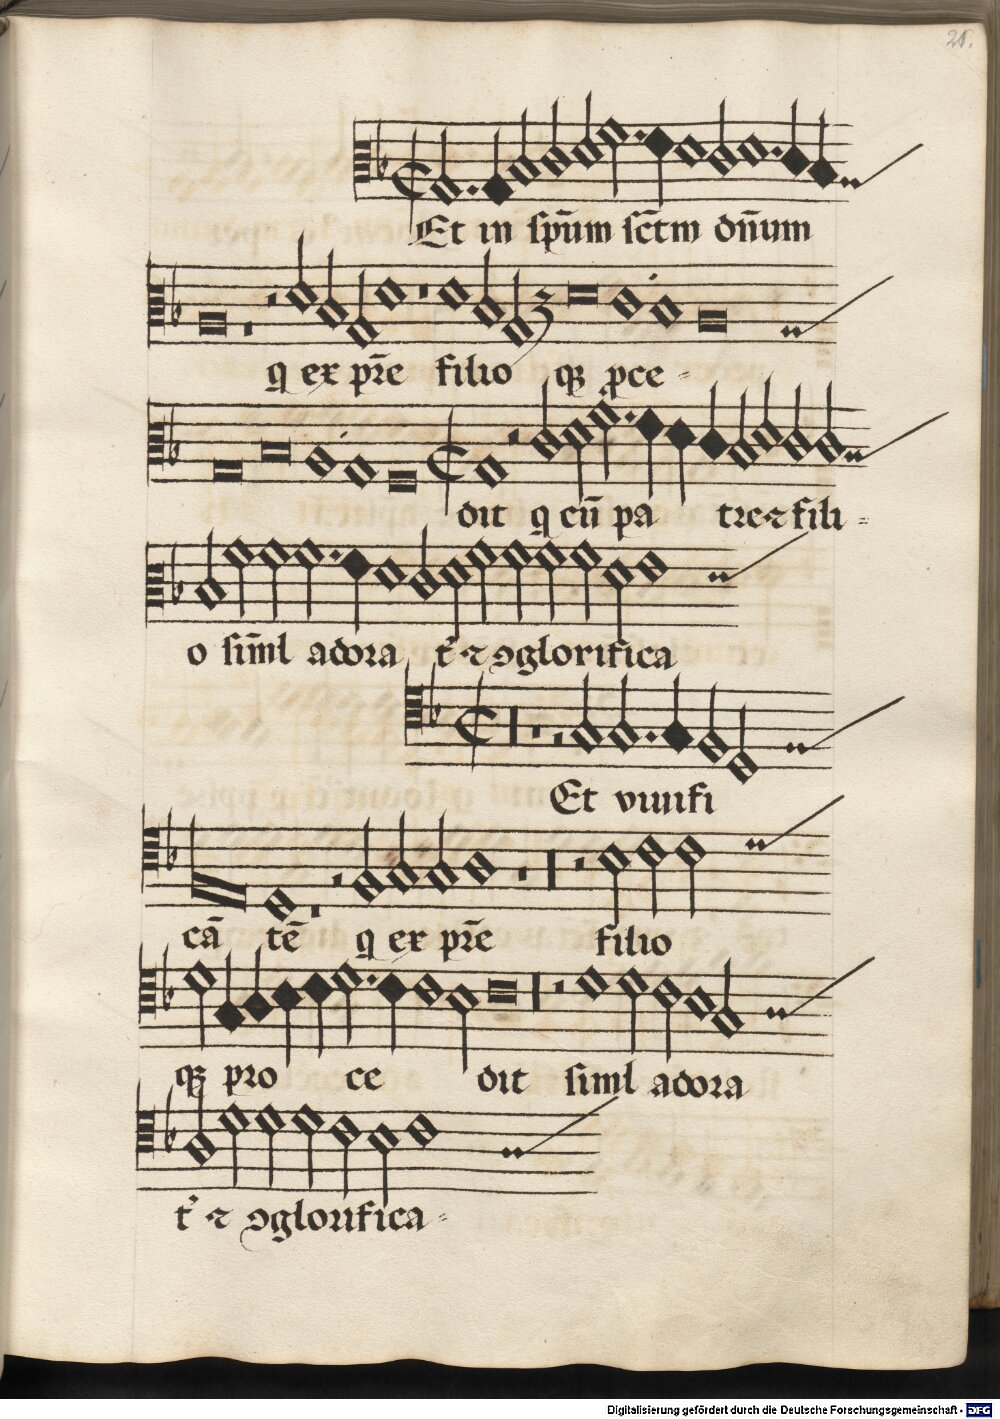 21.
Et in sp̄um sc̄tm dn̄um
q ex pr̄e filio qȝ ꝓce-
dit q cū pa tre ⁊ fili=
o sim̄l adora t᷑ ⁊ ꝯglorifica
Et viuifi
cā tē q ex pr̄e filio
qȝ pro ce dit siml adora
t᷑ ⁊ ꝯglorifica=
Digitalisierung gefördert durch die Deutsche Forschungsgemeinschaft - DFG